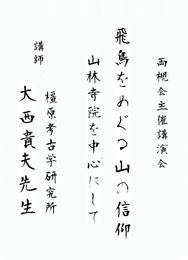 両槻会主催講演会
飛鳥をめぐる山の信仰
山林寺院を中心にして
講師
橿原考古学研究所
大西貴夫先生